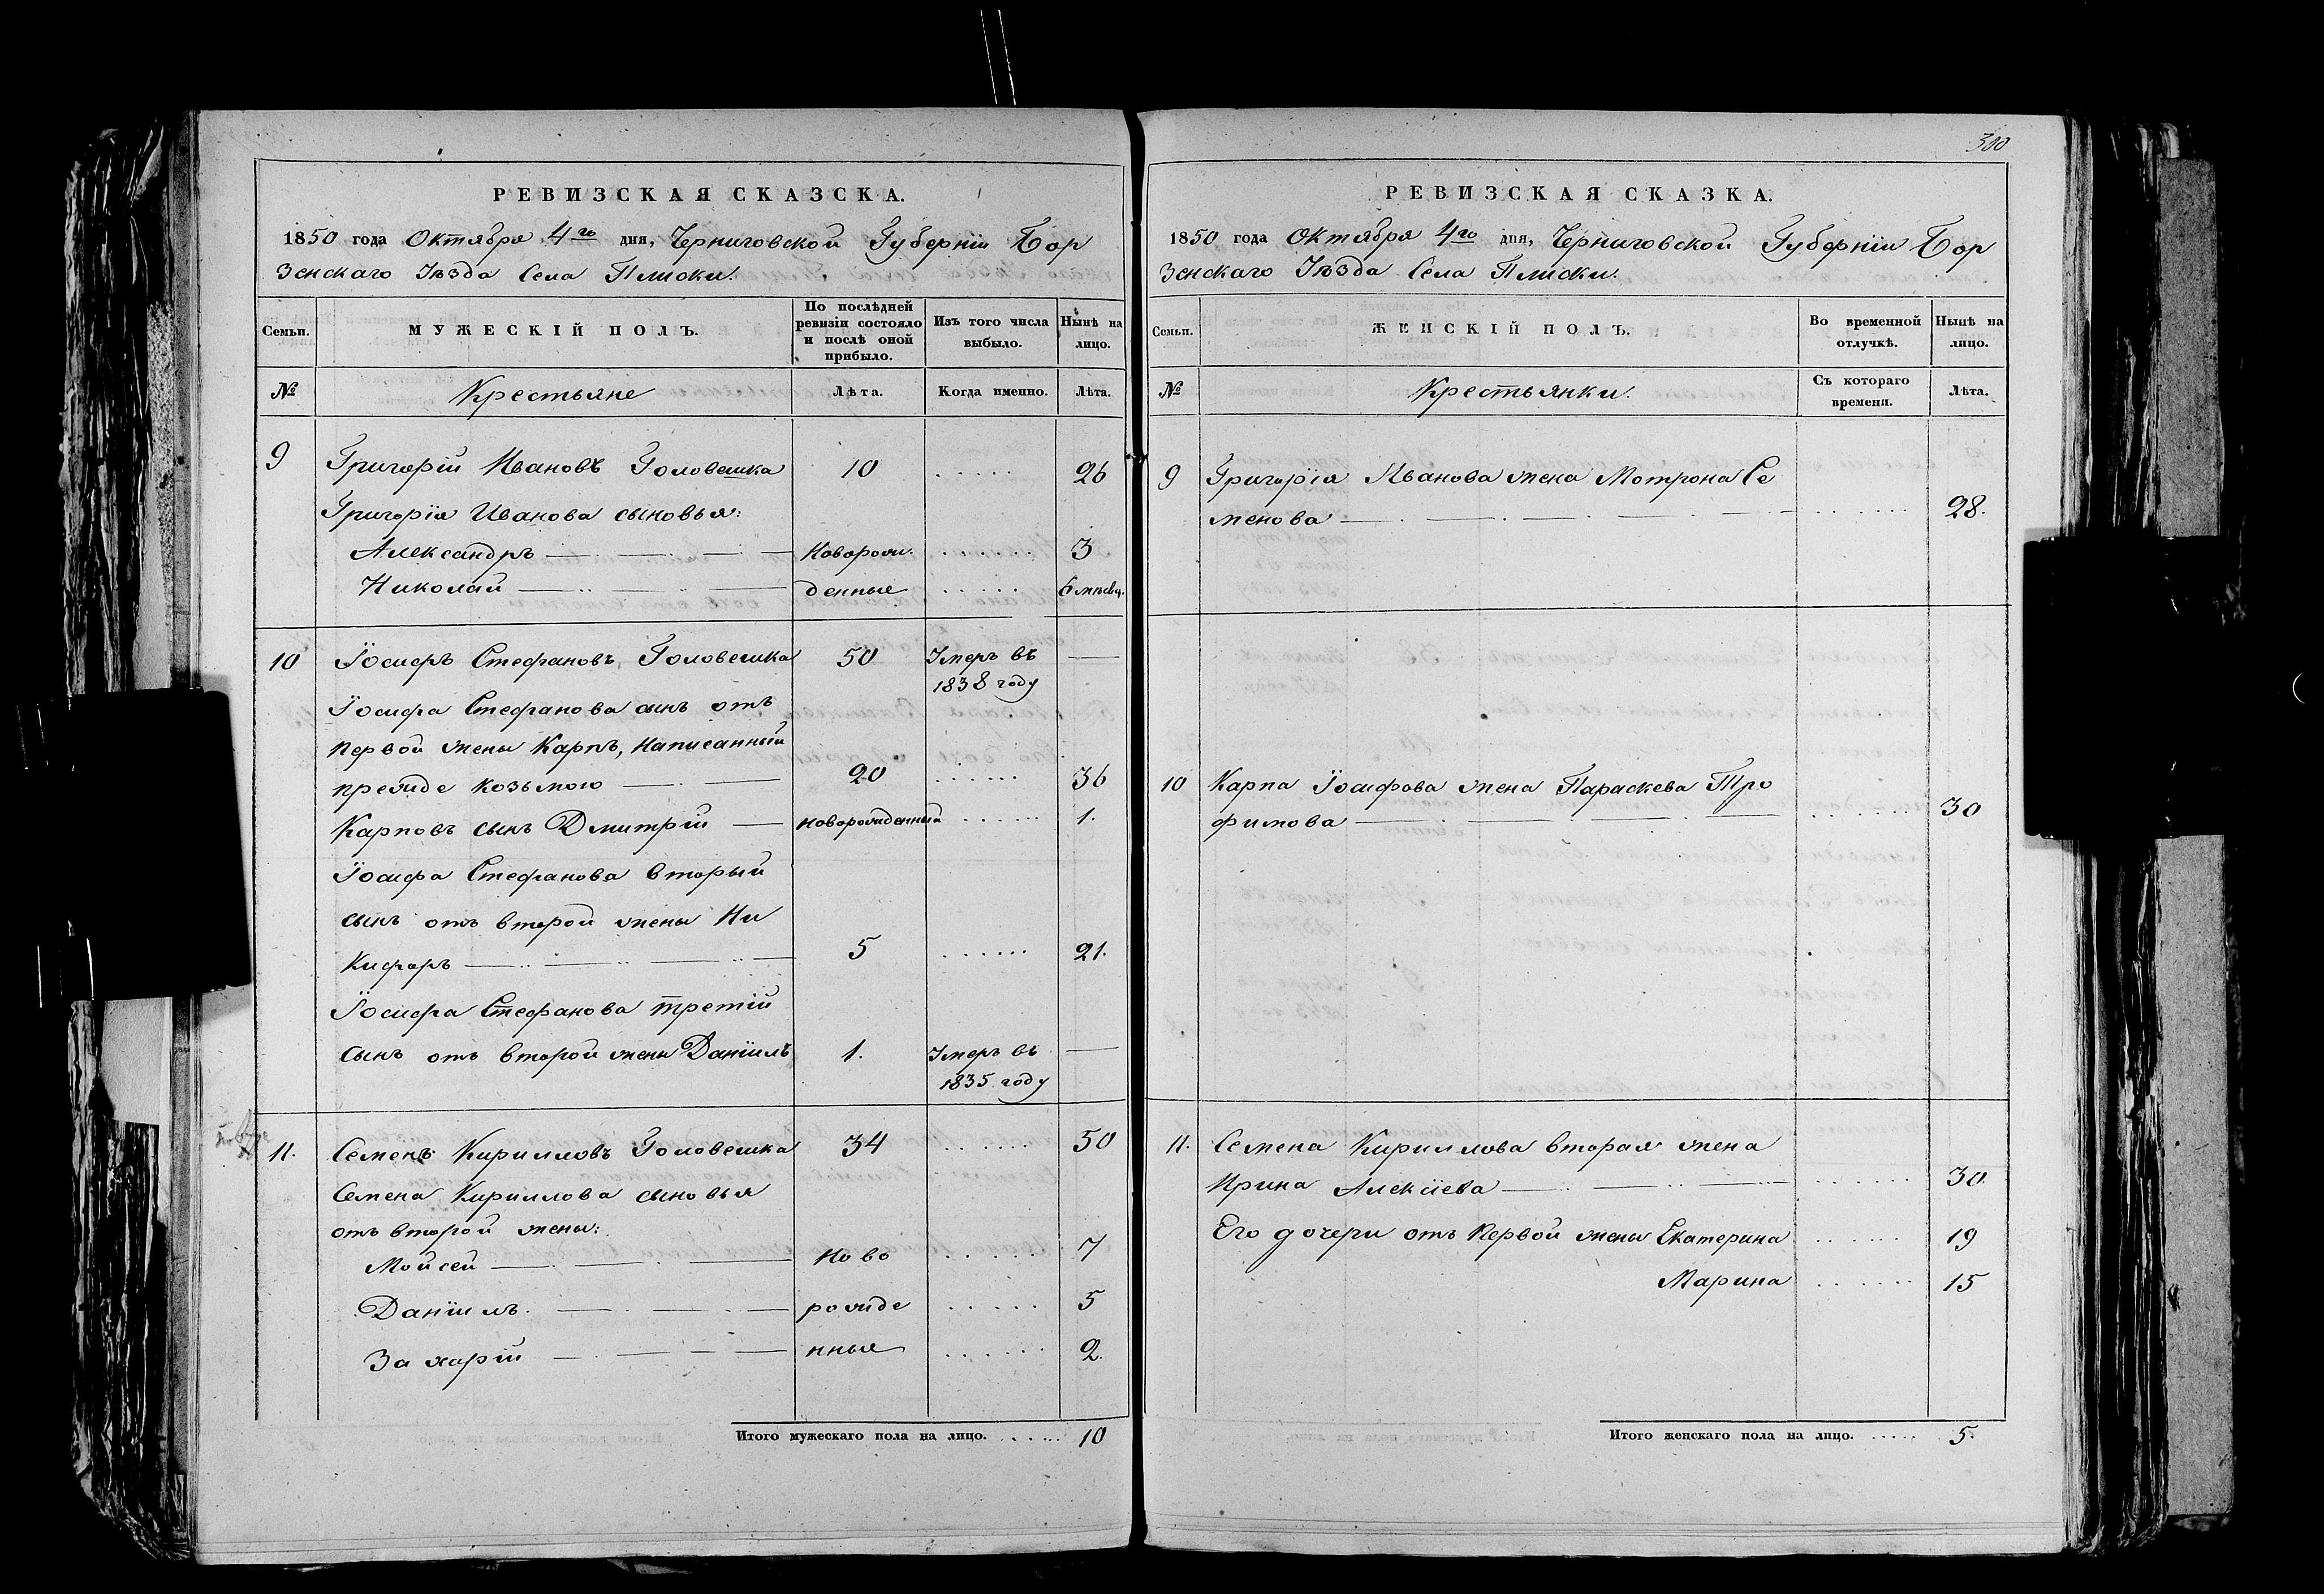 РЕВИЗСКАЯ СКАЗСКА.
1850 года Октября 4го дня, Черниговской Губерніи Бор
зенскаго Уѣзда Села Плиски.
Семьи.
МУЖЕСКІЙ ПОЛЪ.
По послѣдней
ревизіи состояло
и послѣ оной
прибыло.
Изъ того числа
выбыло.
Нынѣ на
лицо.
№
Крестьяне
Лѣта.
Когда именно.
Лѣта.
9 Григорій Ивановъ Головешка 10 ..... 26
Григорія Иванова сыновья:
Александръ — Новорож ...... 3
Николай — денные ..... 6 мѣсяц.
10 Іосифъ Стефановъ Головешка 50 Умеръ въ —
1838 году
Іосифа Стефанова сынъ отъ
первой жены Карпъ, написанный
прежде Козьмою — 20 ...... 36
Карповъ сынъ Дмитрій — новорожденный ...... 1.
Іосифа Стефанова вторый
сынъ отъ второй жены Ни
кифоръ — 5 ...... 21.
Іосифа Стефанова третій
сынъ отъ второй жены Даніилъ 1. Умеръ въ —
1835 году
11. Семенъ Кирилловъ Головешка 34 ...... 50
Семена Кириллова сыновья
отъ второй жены:
Мойсей — ново ...... 7
Даніилъ. — рожде ..... 5
Захарій — нные ...... 2.
Итого мужескаго пола на лицо. ...... 10
300
РЕВИЗСКАЯ СКАЗКА.
1850 года Октября 4го дня, Черниговской Губерніи Бор
зенскаго Уѣзда Села Плиски.
Семьи.
ЖЕНСКІЙ ПОЛЪ.
Во временной
отлучкѣ.
Нынѣ на
лицо.
№
Крестьянки.
Съ котораго
времени.
Лѣта.
9 Григорія Иванова жена Мотрона Се
менова — ...... 28.
10 Карпа Іосифова жена Параскева Тро
фимова — ...... 30
11. Семена Кириллова вторая жена
Ирина Алексіева — ...... 30.
Его дочери отъ первой жены Екатерина ...... 19
Марина ...... 15
Итого женскаго пола на лицо. ..... 5.